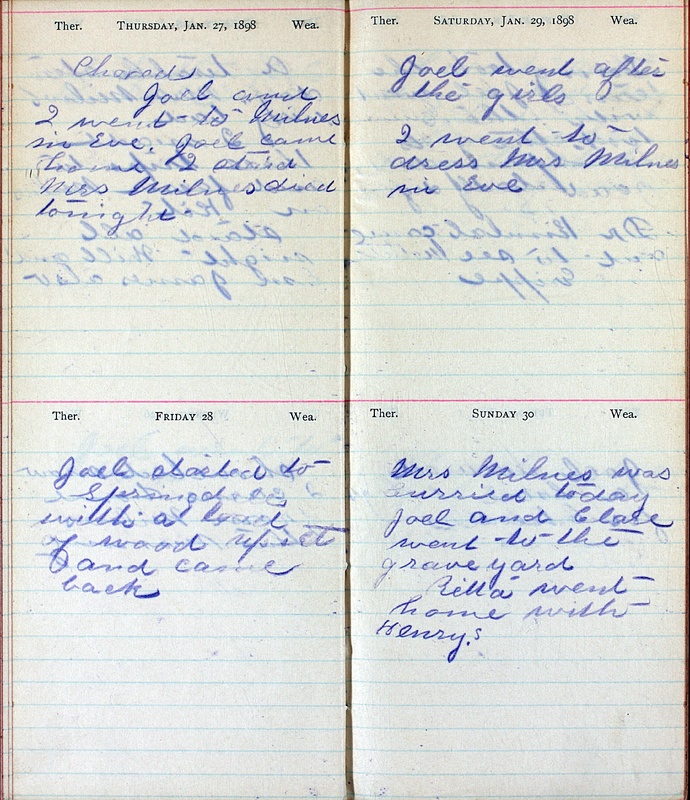 Ther. THURSDAY, JAN. 27, 1898 Wea.
Chored
Joel and
I went to Milnes
in Eve. Joel came
home I staid
Mrs Milnes died
tonight
Ther. FRIDAY 28 Wea.
Joel started to
with a load
of wood upset
and came
back
Ther. SATURDAY, JAN. 29, 1898 Wea.
Joel went after
the girls
I went to
dress Mrs Milnes
in Eve
Ther. SUNDAY 30 Wea.
Mrs Milnes was
burried today
Joel and Clate
went to the
graveyard
Retta went
home with
Henry,s